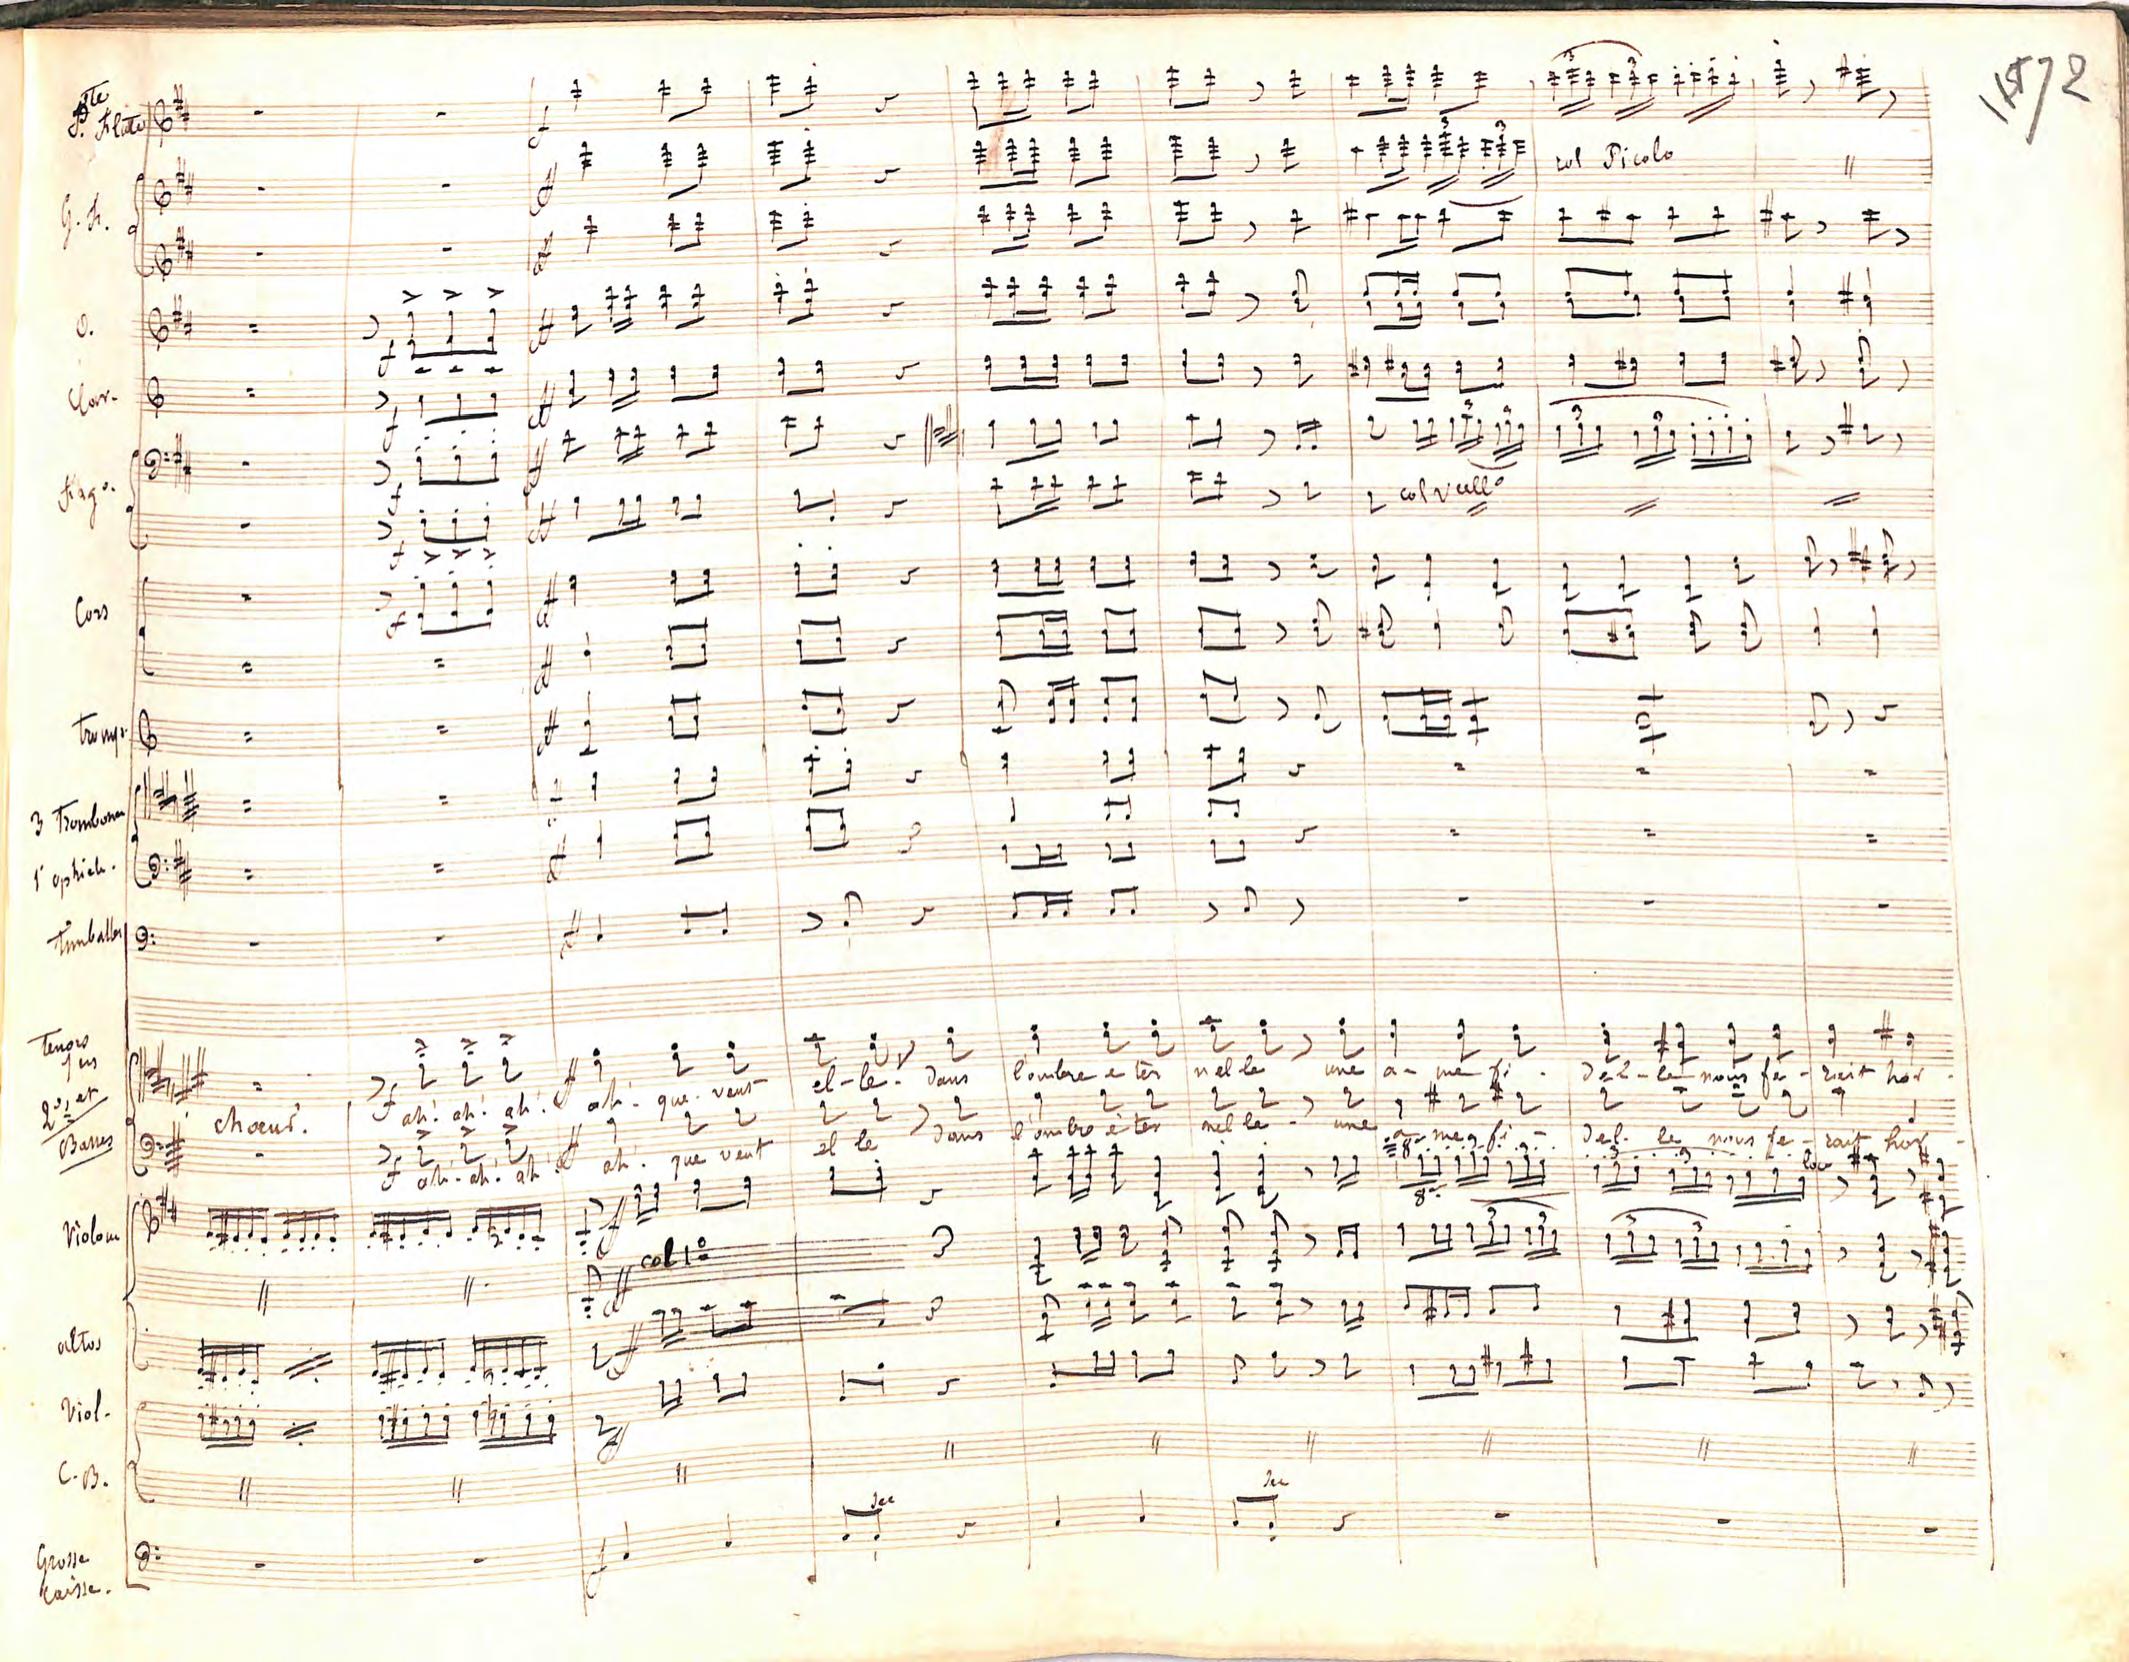 Pte Flute
col Picolo
G. f.
O.
Clar.
Fago.
col Vcello
Cors
Tromp.
3 Trombones
1 ophicle.
Timballes
Tenors
1ers
2ds et
Basses
ah! ah! ah! ah! que veut el-le. dans l'ombre eter nelle une a-me fi- del-le nous fe-rait hor-
chœur.
ah! ah! ah! ah! que veut el le dans l'ombre eter nelle- une a-me fi- del. le nous fe-rait hor-
8a
loco
8a
Violons
col 1º
altos
Viol.
C.B.
sec
sec
Grosse
caisse.